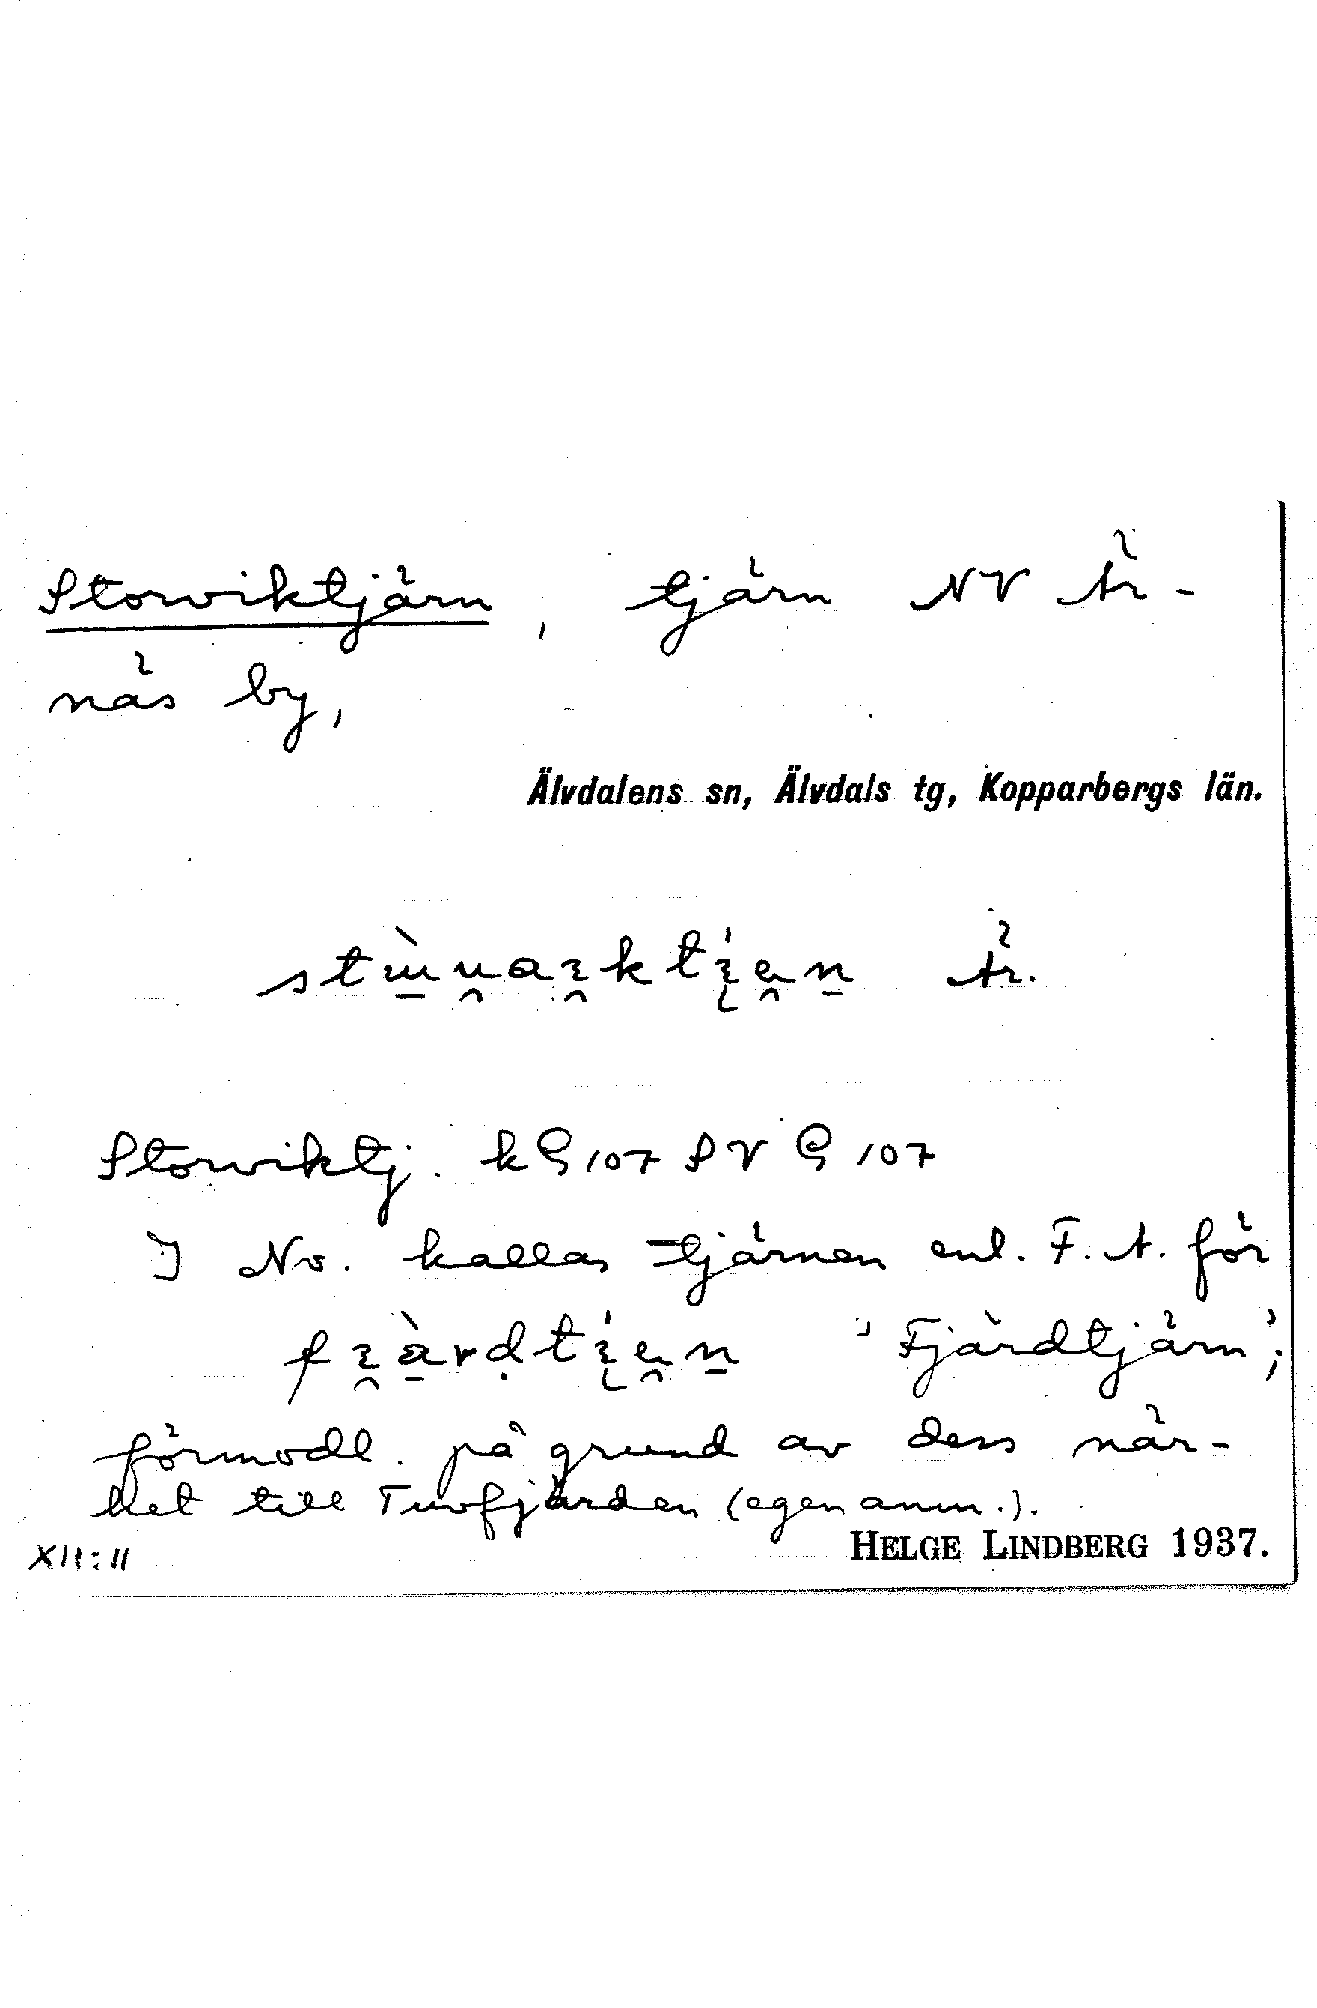 Storviktjärn, tjärn NV Är-
näs by,
Älvdalens sn, Älvdals tg, Kopparbergs län.
Är.
Storviktj. kG 107 SV G 107
I No. kallas tjärnen enl. F. A. för
'Fjärdtjärn';
förmodl. på grund av dess när-
het till Tuvfjärden (egen anm.).
XII:11
HELGE LINDBERG 1937.